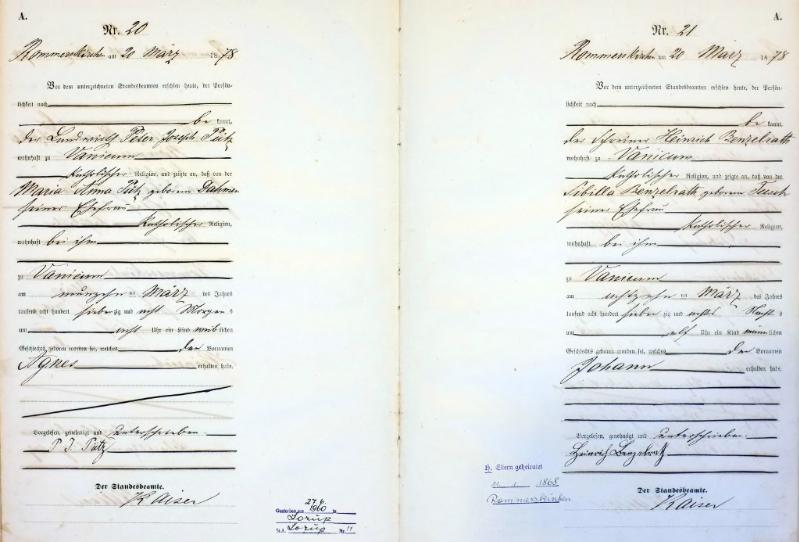 A.
Nr. 20
Rommerskirchen am 20 März 1878
Vor dem unterzeichneten Standesbeamten erschien heute, der Persön-
lichkeit nach
be kannt,
der Landwirth Peter Joseph Pütz
wohnhaft zu Vanicum
katholischer Religion, und zeigte an, daß von der
Maria Anna Pütz geborene Dahmen
seiner Ehefrau
katholischer Religion,
wohnhaft bei ihm
zu Vanicum
am neunzehn ten März des Jahres
tausend acht hundert siebenzig und acht Morgens
um acht Uhr ein Kind weiblichen
Geschlechts geboren worden sei, welches den Vornamen
Agnes erhalten habe.
Vorgelesen, genehmigt und unterschrieben
P. J. Pütz
Der Standesbeamte.
Kaiser
27.6.
Gestorben am 1960 in
Lorup
St.A. Lorup Nr. 11
A.
Nr. 21
Rommerskirchen am 20 März 1878
Vor dem unterzeichneten Standesbeamten erschien heute, der Persön-
lichkeit nach
be kannt,
der Schreiner Heinrich Benzelrath
wohnhaft zu Vanicum
katholischer Religion, und zeigte an, daß von der
Sibilla Benzelrath geborene
seiner Ehefrau
katholischer Religion,
wohnhaft bei ihm
zu Vanicum
am achtzehn ten März des Jahres
tausend acht hundert siebenzig und acht Nachts
um elf Uhr ein Kind männlichen
Geschlechts geboren worden sei, welches den Vornamen
Johann erhalten habe.
Vorgelesen, genehmigt und unterschrieben
Heinrich Benzelrath
Der Standesbeamte.
Kaiser
H. Eltern geheiratet
1868
Rommerskirchen